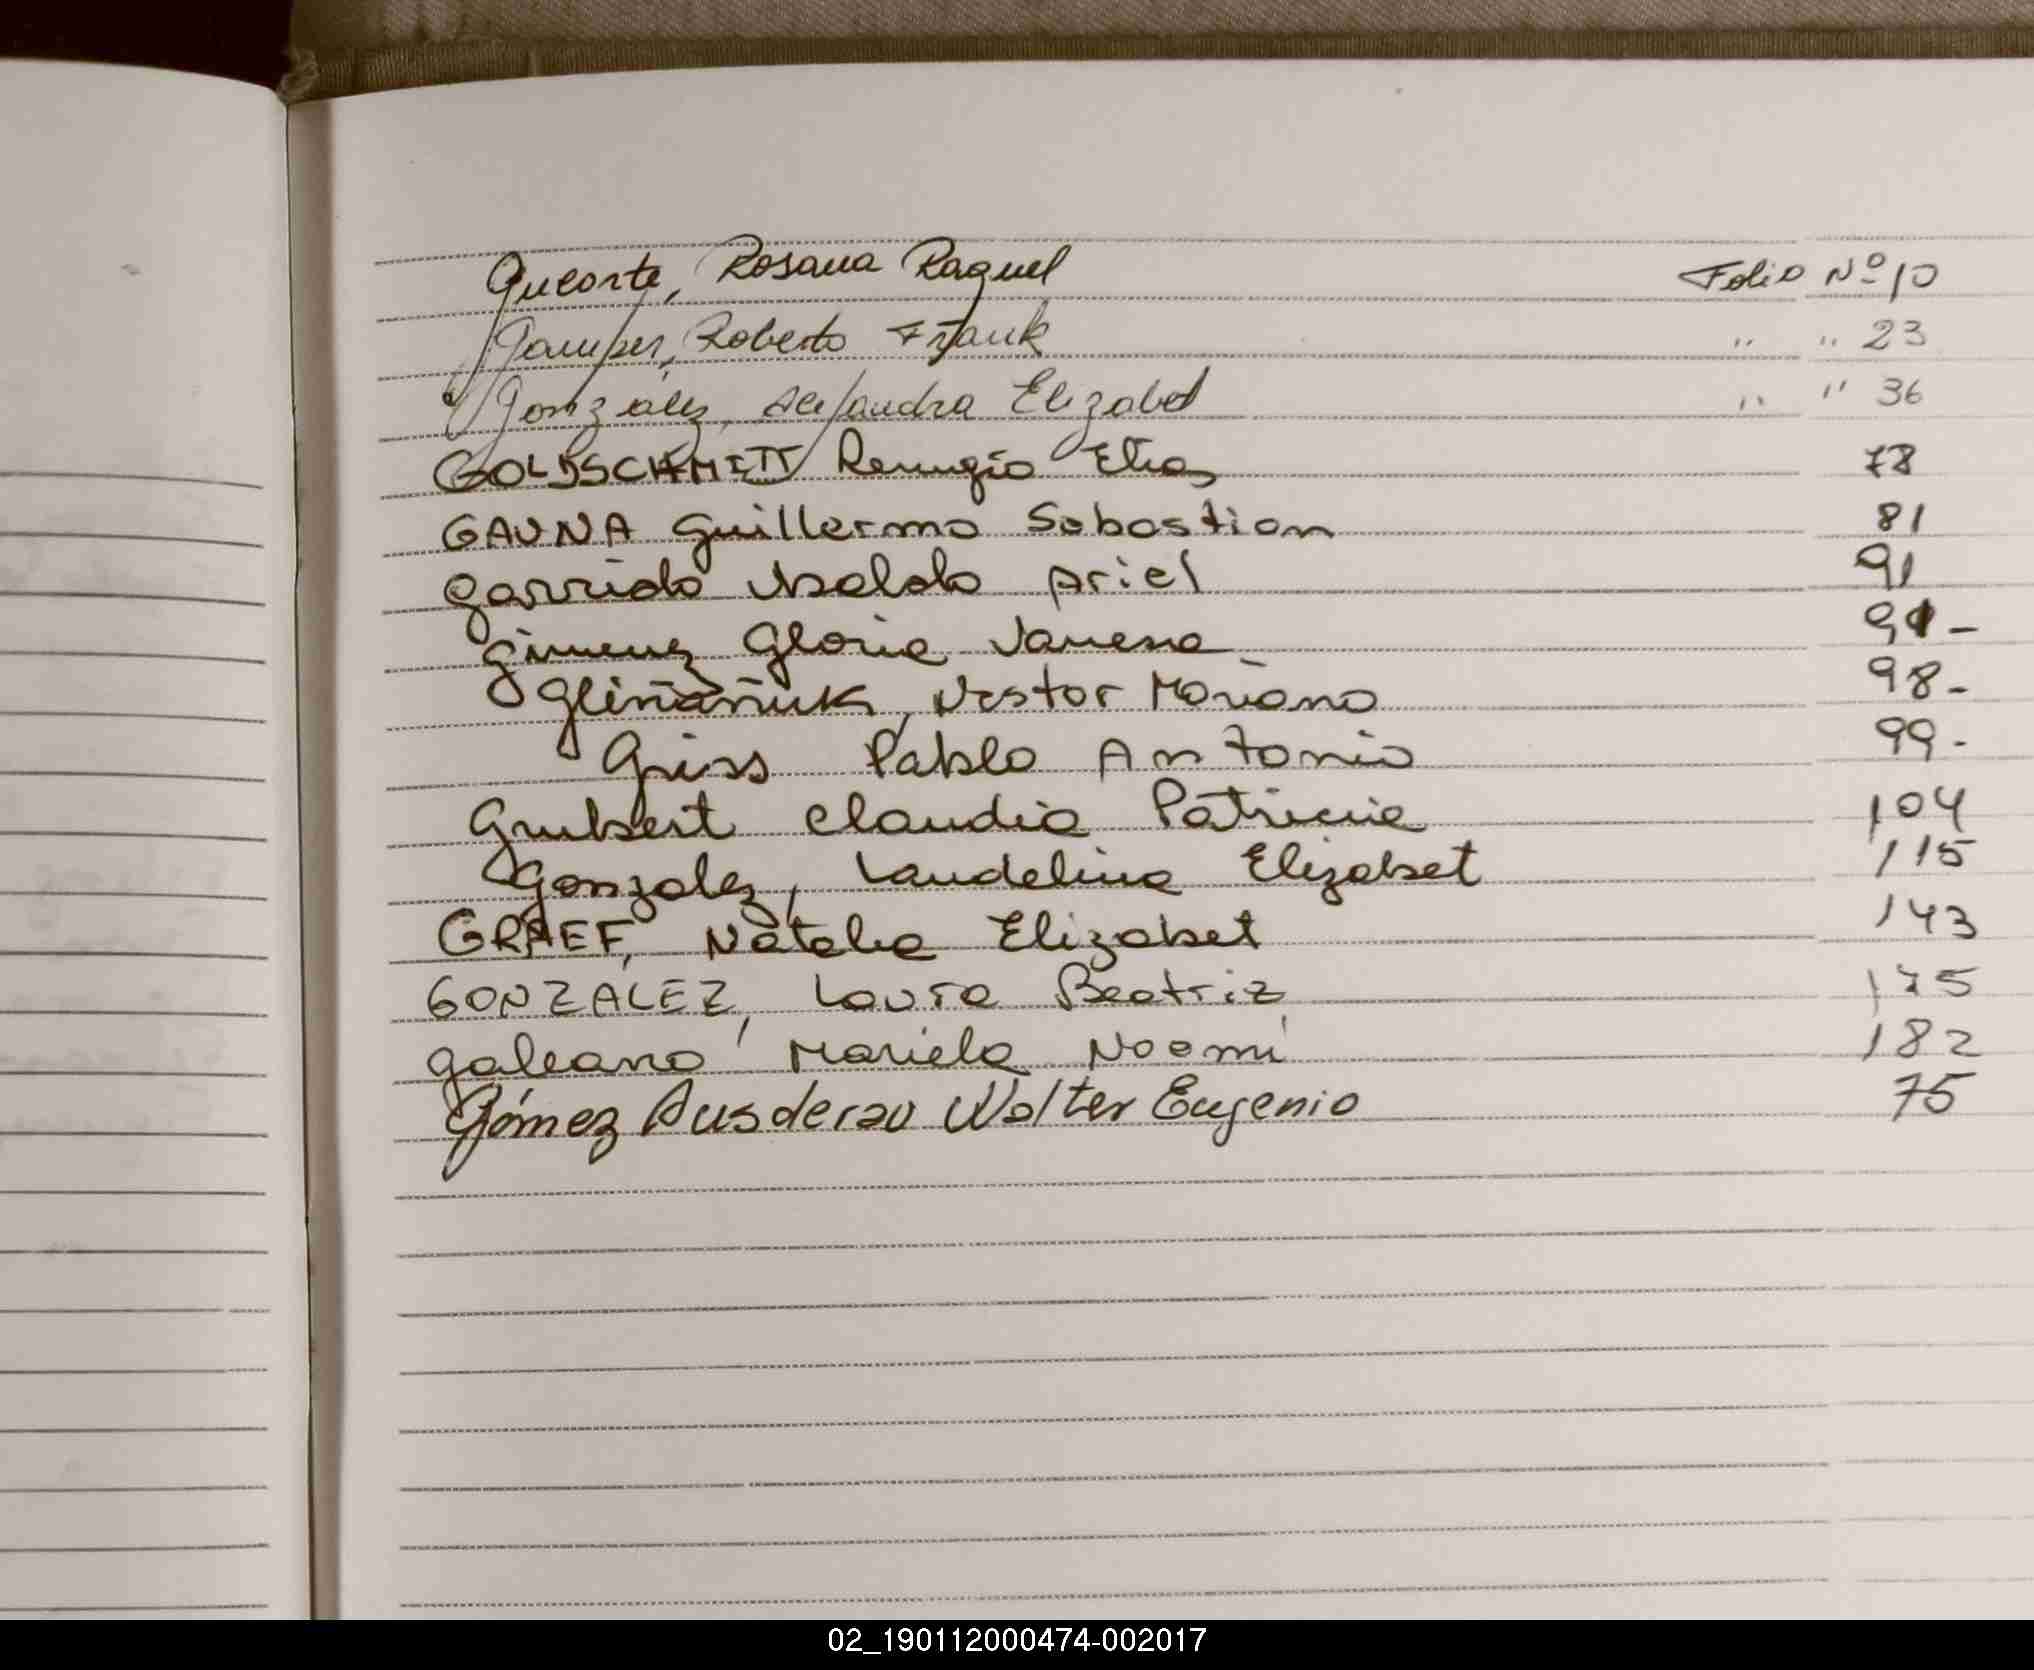 Gucorte, Rosana Raquel Folio Nº 10
Gamper, Roberto Frank " " 23
González, Alejandra Elizabet " " 36
GOLDSCHMITT Remugio Elias 78
GAUNA Guillermo Sebastian 81
Garrido Osaldo Ariel 91
Gimenez Gloria Vanesa 91 -
Gliniañuk, Nestor Mariano 98 -
Griss Pablo Antonio 99 -
Grubert Claudia Patricia 104
Gonzalez, Laudelina Elizabet 115
GRAEF, Natalia Elizabet 143
GONZALEZ, Laura Beatriz 175
galeano Mariela Noemi 182
Gómez Ausderau Walter Eugenio 75
02_190112000474-002017